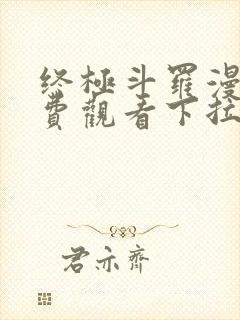 终極斗羅漫
費觀看下拉
君亦齊